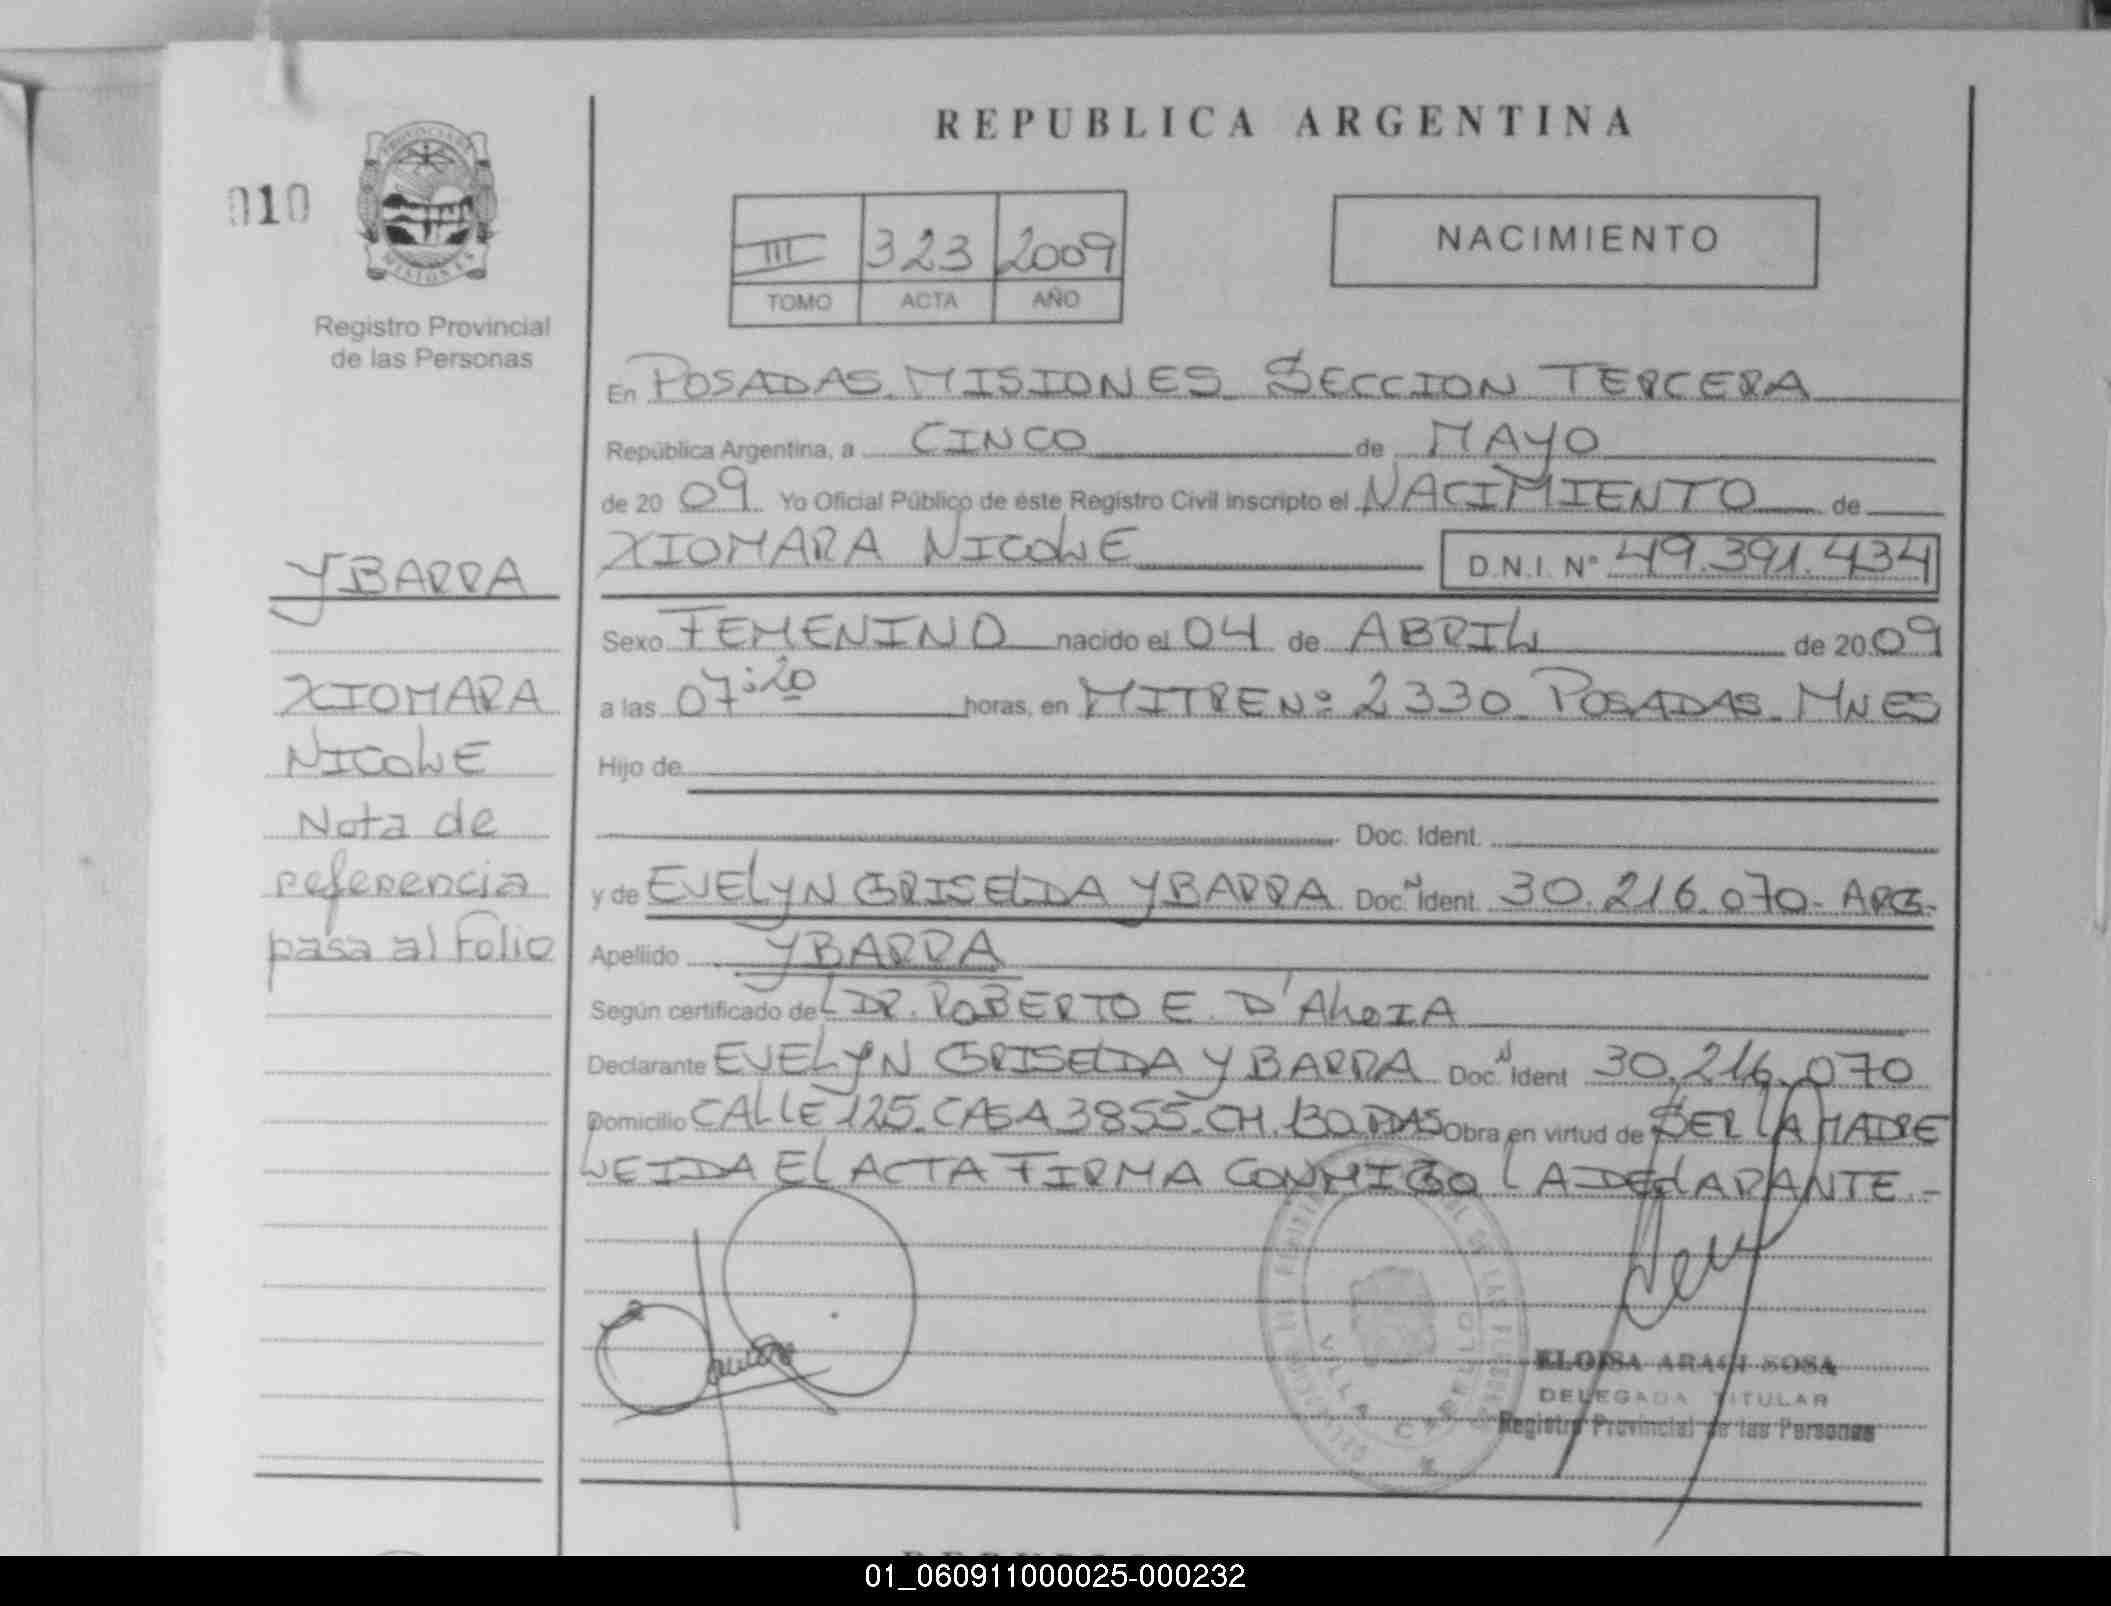 REPUBLICA ARGENTINA
010
PROVINCIA
MISIONES
Registro Provincial
de las Personas
III 323 2009
TOMO ACTA AÑO
NACIMIENTO
En POSADAS. MISIONES. SECCION TERCERA
República Argentina, a CINCO de MAYO
de 20 09. Yo Oficial Público de éste Registro Civil inscripto el NACIMIENTO de
XIOMARA NICOLE D.N.I. N° 49.391.434
Sexo FEMENINO nacido el 04 de ABRIL de 20 09
a las 07:20 horas, en MITRE Nº 2330 POSADAS. MNES
Hijo de
Doc. Ident.
y de EVELYN GRISELDA YBARRA Doc. N Ident. 30.216.070- ARG-
Apellido YBARRA
Según certificado del DR. ROBERTO E.
Declarante EVELYN GRISELDA YBARRA Doc. N Ident 30.216.070
Domicilio CALLE 125. CASA 3855. CH. 130. PDAS Obra en virtud de SER LA MADRE
LEIDA EL ACTA FIRMA CONMIGO LA DECLARANTE -
YBARRA
XIOMARA
NICOLE
Nota de
referencia
pasa al folio
VILLA CABELLO
ELOISA ARACI SOSA
DELEGADA TITULAR
Registro Provincial de las Personas
01_060911000025-000232